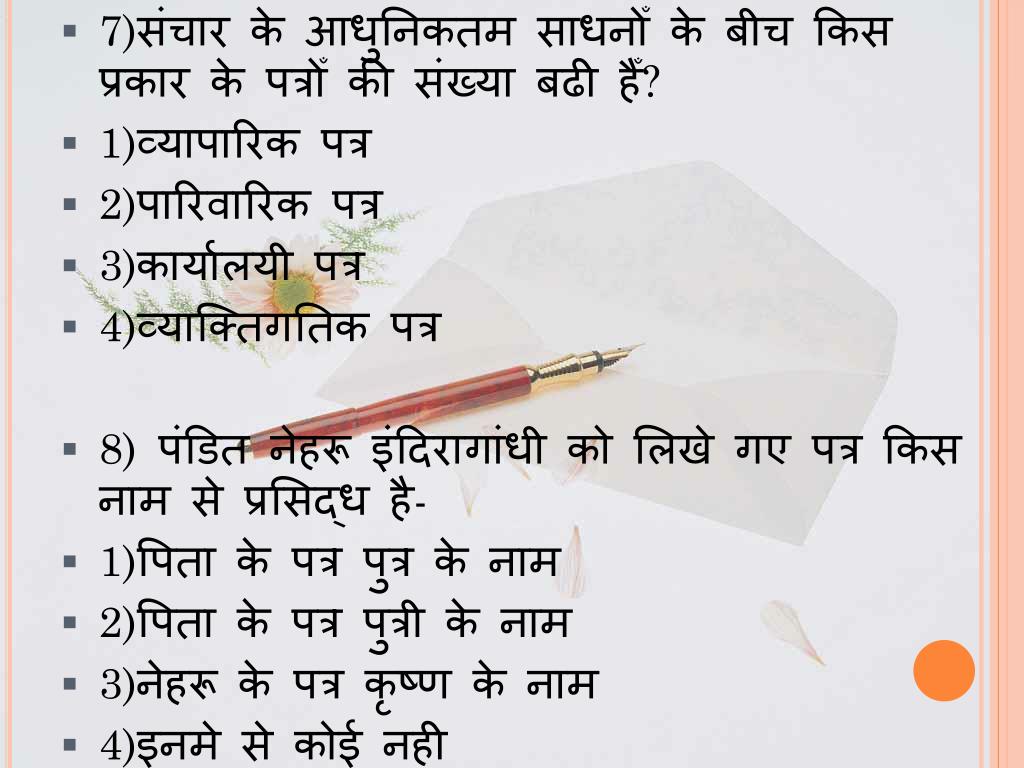 ▪ 7)संचार के आधुनिकतम साधनोँ के बीच किस
प्रकार के पत्रोँ की संख्या बढी हैँ?
▪ 1)व्यापारिक पत्र
▪ 2)पारिवारिक पत्र
▪ 3)कार्यालयी पत्र
▪ 4)व्याक्तिगतिक पत्र
▪ 8) पंडित नेहरू इंदिरागांधी को लिखे गए पत्र किस
नाम से प्रसिद्ध है-
▪ 1)पिता के पत्र पुत्र के नाम
▪ 2)पिता के पत्र पुत्री के नाम
▪ 3)नेहरू के पत्र कृष्ण के नाम
▪ 4)इनमे से कोई नही